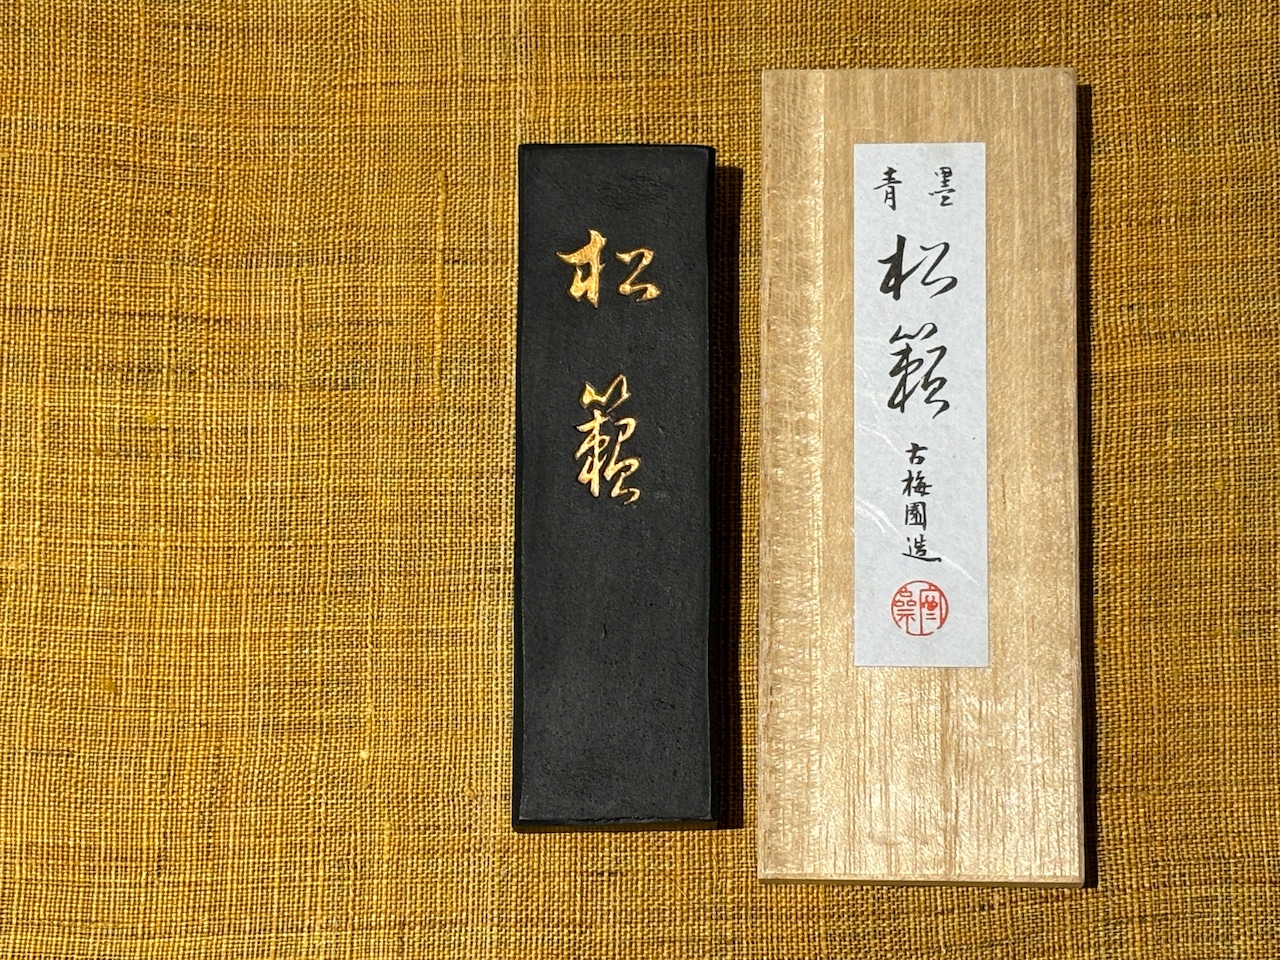 松籟
青墨
松籟
古梅園造